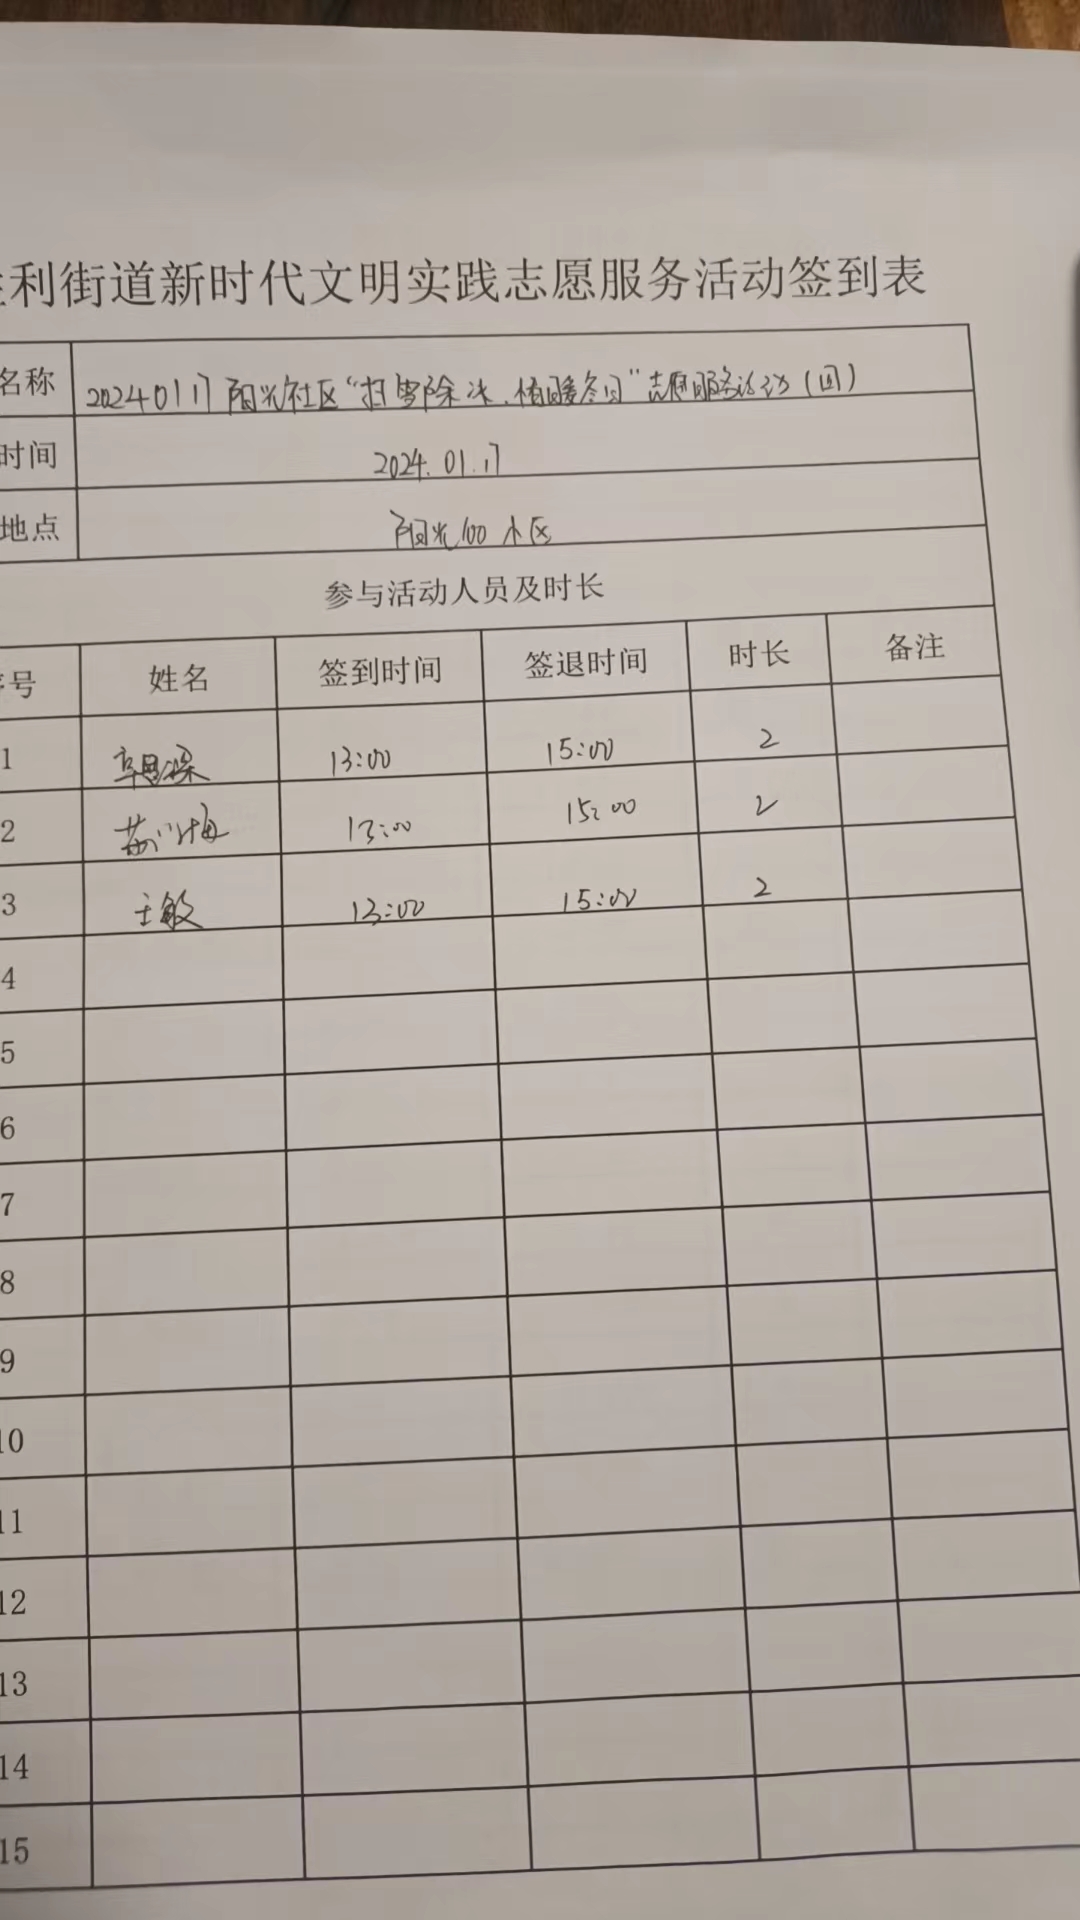 利街道新时代文明实践志愿服务活动签到表
名称 20240117 阳光社区“扫雪除冰、情暖冬日”志愿服务活动(四)
时间 2024.01.17
地点 阳光100小区
参与活动人员及时长
序号 姓名 签到时间 签退时间 时长 备注
1 13:00 15:00 2
2 13:00 15:00 2
3 王敏 13:00 15:00 2
4
5
6
7
8
9
10
11
12
13
14
15